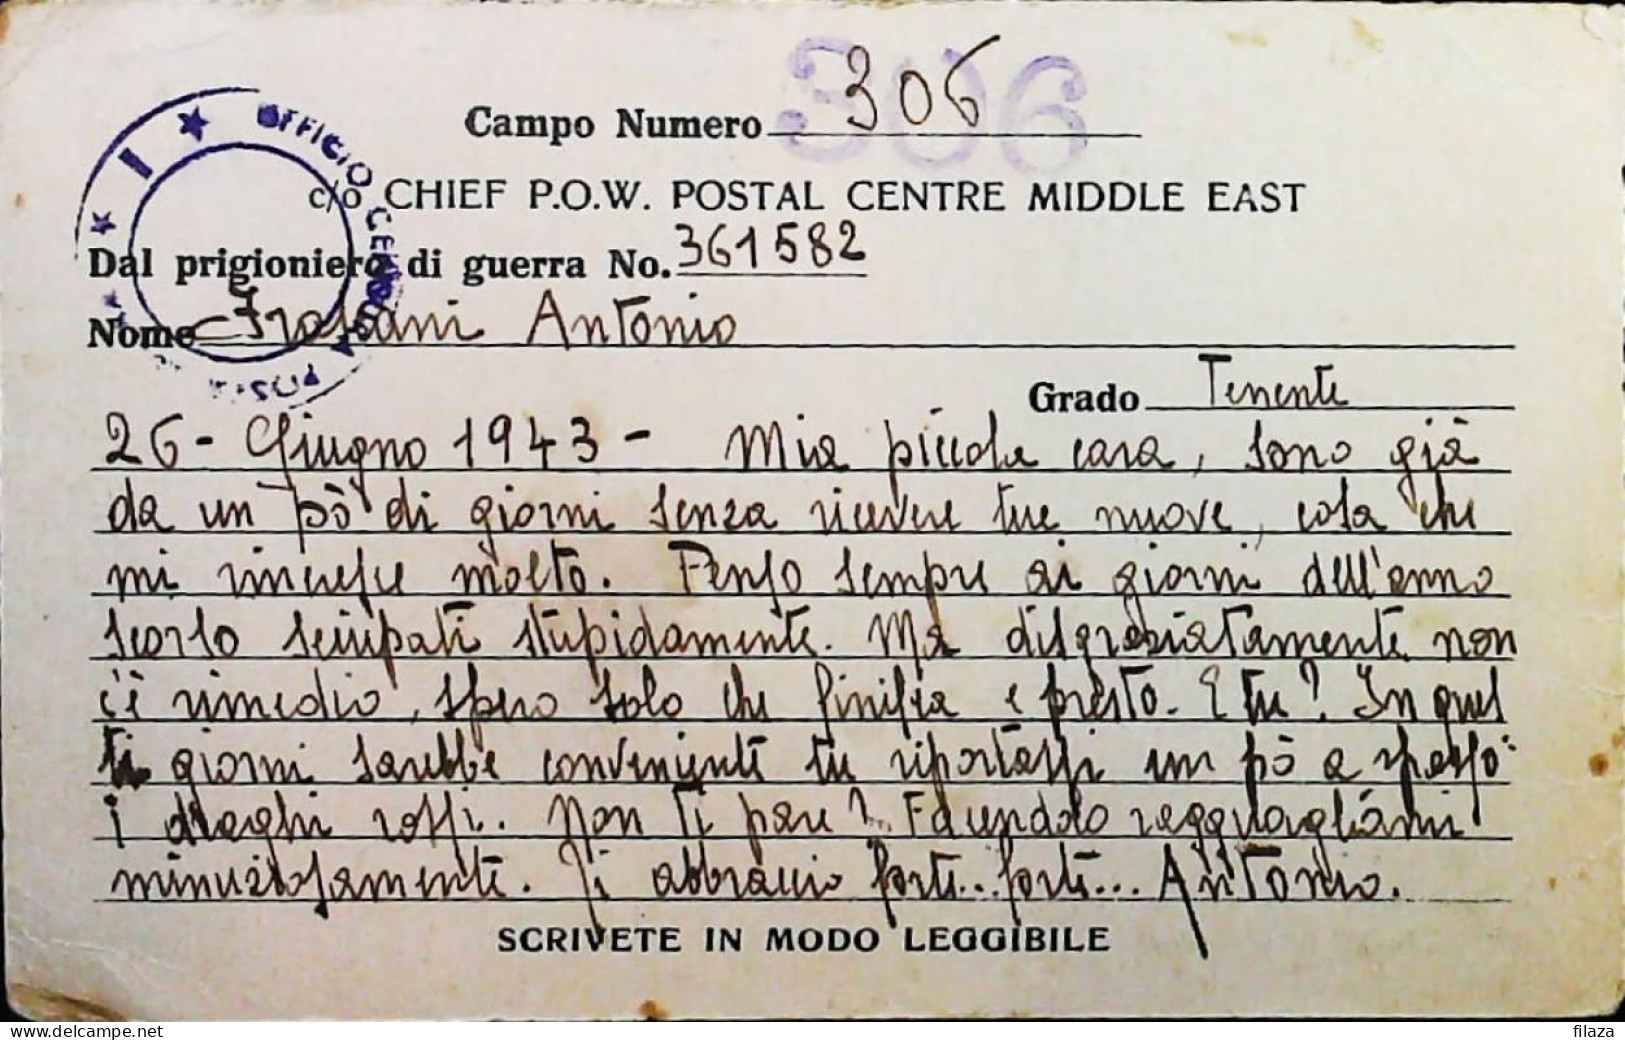 Campo Numero 306
306
c/o CHIEF P.O.W. POSTAL CENTRE MIDDLE EAST
Dal prigioniero di guerra No. 361582
Nome Antonio
Grado Tenente
26 - Giugno 1943 - Mia piccola cara, sono già
da un pò di giorni senza ricevere tue nuove, cosa che
mi rincresce molto. Penso sempre ai giorni dell'anno
scorso sciupati stupidamente. Ma disgraziatamente non
c'è rimedio, spero solo che finisca e presto. E tu? In ques
ti giorni sarebbe conveniente tu riportassi un pò a spasso
i draghi rossi. Non ti pare? Facendolo ragguagliami
minuziosamente. Ti abbraccio forte... forte... Antonio.
SCRIVETE IN MODO LEGGIBILE
UFFICIO CENSURA POSTALE
delcampe.net
filaza